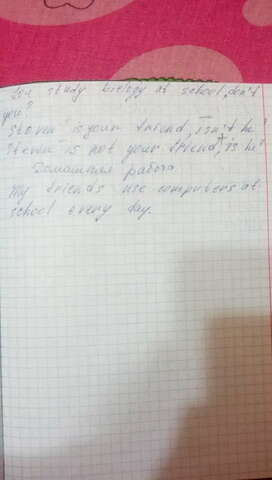 You study biology at school, don't
you?
Steven is your friend, isn't he?
Steven is not your friend, is he?
Домашняя работа.
My friends use computers at
school every day.